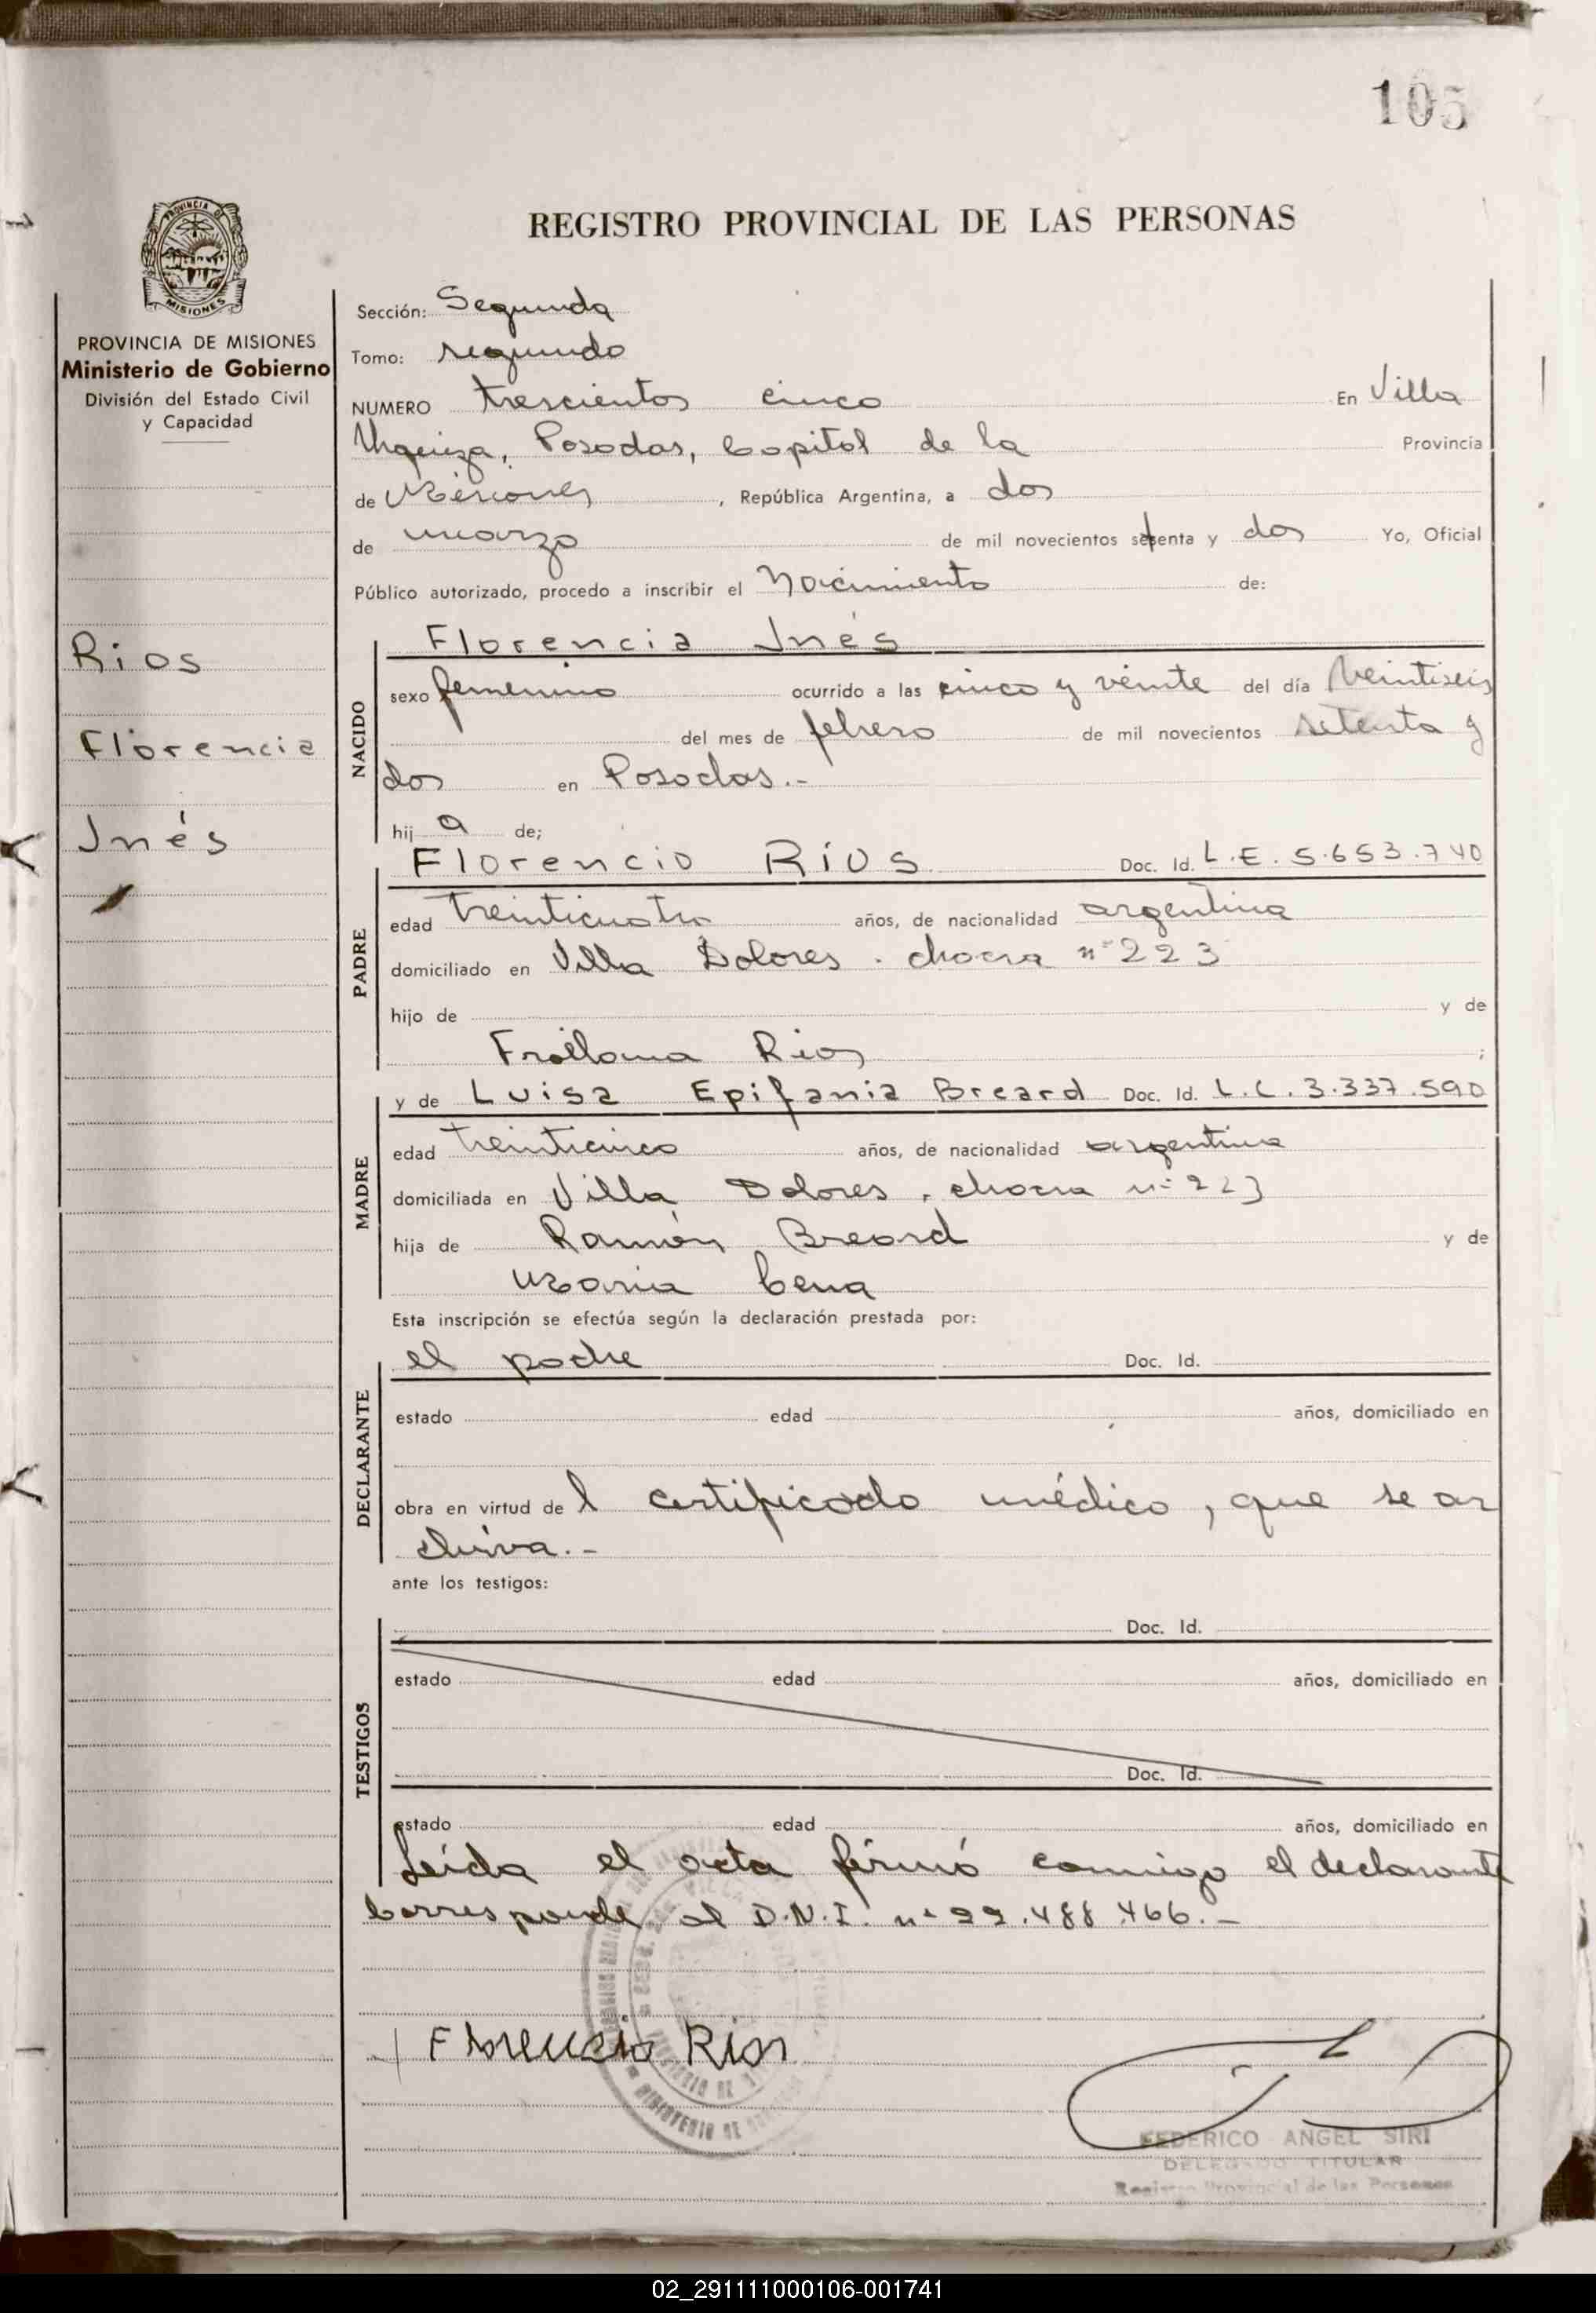 105
REGISTRO PROVINCIAL DE LAS PERSONAS
PROVINCIA DE MISIONES
MISIONES
PROVINCIA DE MISIONES
Ministerio de Gobierno
División del Estado Civil
y Capacidad
Rios
Florencia
Inés
Sección: Segunda
Tomo: segundo
NUMERO trescientos cinco En Villa
Urquiza, Posadas, Capital de la Provincia
de Misiones, República Argentina, a dos
de marzo de mil novecientos setenta y dos Yo, Oficial
Público autorizado, procedo a inscribir el Nacimiento de:
NACIDO
Florencia Inés
sexo femenino ocurrido a las cinco y veinte del día veintiseis
del mes de febrero de mil novecientos setenta y
dos en Posadas.-
hij a de;
PADRE
Florencio Ríos Doc. Id. L.E. 5.653.740
edad treinticuatro años, de nacionalidad argentina
domiciliado en Villa Dolores. chacra nº 223
hijo de y de
Froilana Rios ;
MADRE
y de Luisa Epifania Breard Doc. Id. L.C. 3.337.590
edad treinticinco años, de nacionalidad argentina
domiciliada en Villa Dolores, chacra nº 223
hija de Ramón Breard y de
Maria Cena
Esta inscripción se efectúa según la declaración prestada por:
DECLARANTE
el padre Doc. Id.
estado edad años, domiciliado en
obra en virtud de l certificado médico, que se ar
chiva.-
ante los testigos:
TESTIGOS
Doc. Id.
estado edad años, domiciliado en
Doc. Id.
estado edad años, domiciliado en
Leída el acta firmó conmigo el declarante
Corresponde al D.N.I. nº 22.488.466.-
Florencio Rios
FEDERICO ANGEL SIRI
DELEGADO TITULAR
Registro Provincial de las Personas
02_291111000106-001741